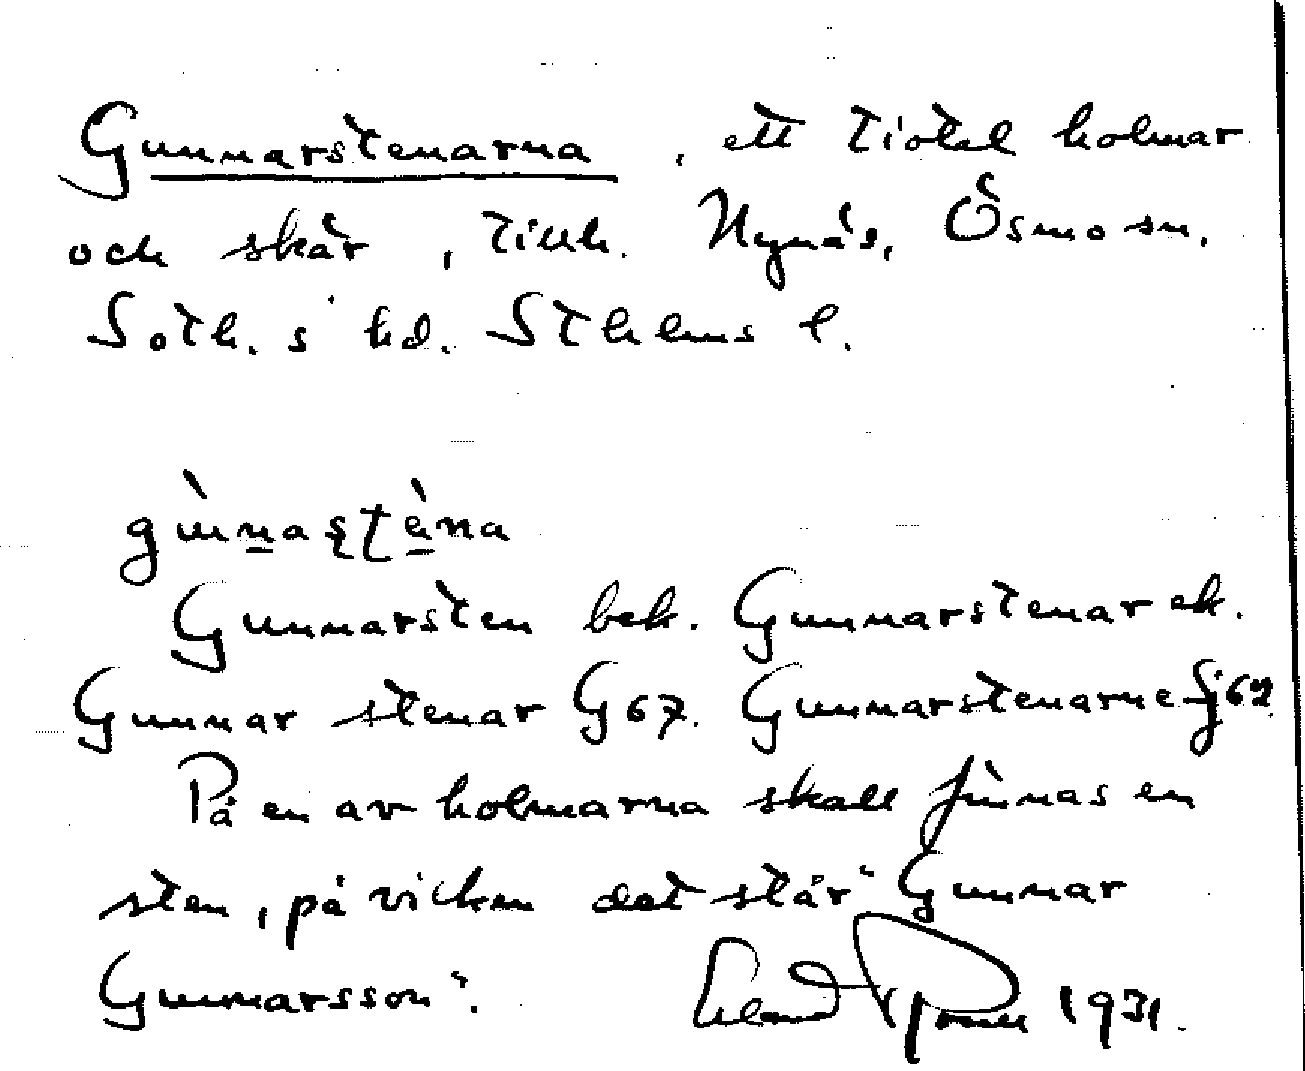 Gunnarstenarna, ett tiotal holmar
och skär, tillh. Nynäs, Ösmo sn,
Soth. s hd. Sthlms l.
Gunnarsten bek. Gunnarstenar ek.
Gunnar stenar G67. Gunnarstenarne Gj62
På en av holmarna skall finnas en
sten, på vicken det står "Gunnar
Gunnarsson".
1931.